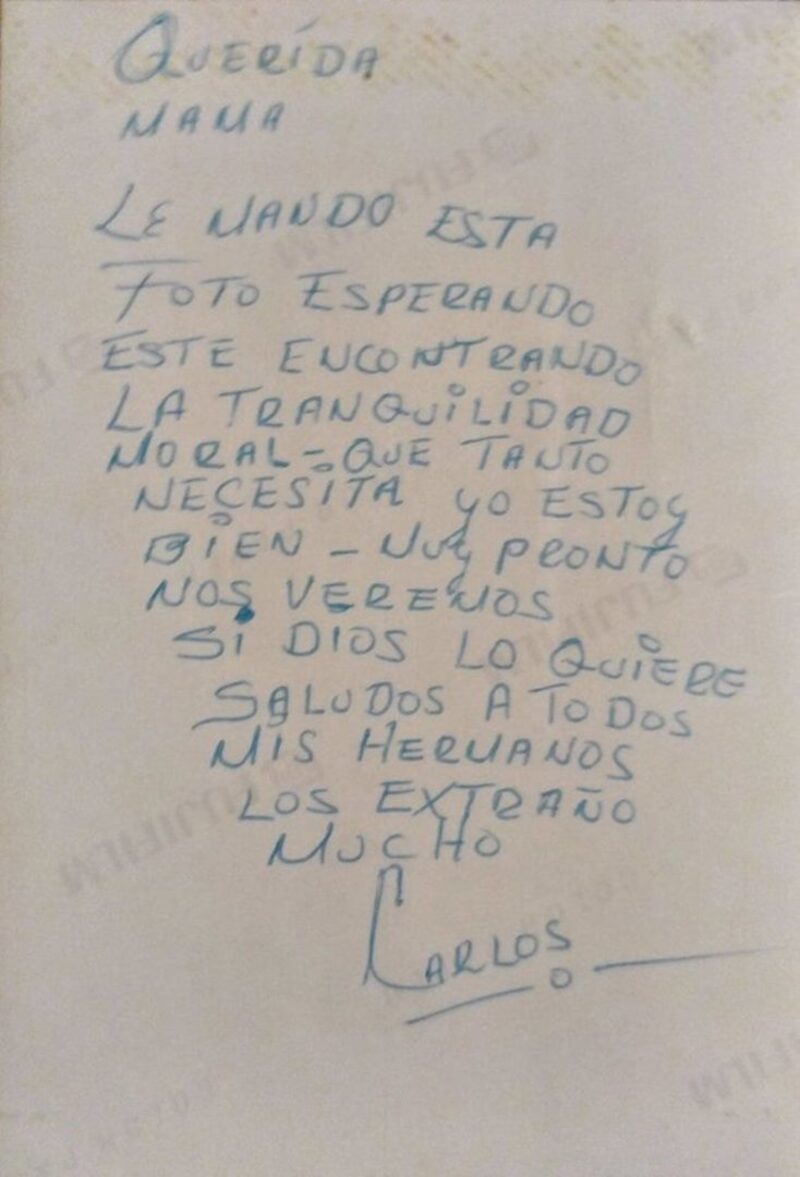 QUERÍDA
MAMA
LE MANDO ESTA
FOTO ESPERANDO
ESTE ENCONTRANDO
LA TRANQUILIDAD
MORAL - QUE TANTO
NECESITA YO ESTOY
BIEN - MUY PRONTO
NOS VEREMOS
SI DIOS LO QUIERE
SALUDOS A TODOS
MIS HERMANOS
LOS EXTRAÑO
MUCHO
CARLOS